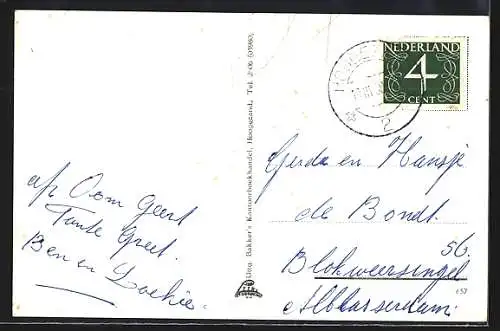 NEDERLAND
4
CENT
2
a/z Oom Geert
Tante Greet.
Ben en Loekie.
Uitg. Bakker's Kantoorboekhandel, Hoogezand, Tel.
Gerda en Hansje
de Bondt.
56.
Blokweersingel
Alblasserdam